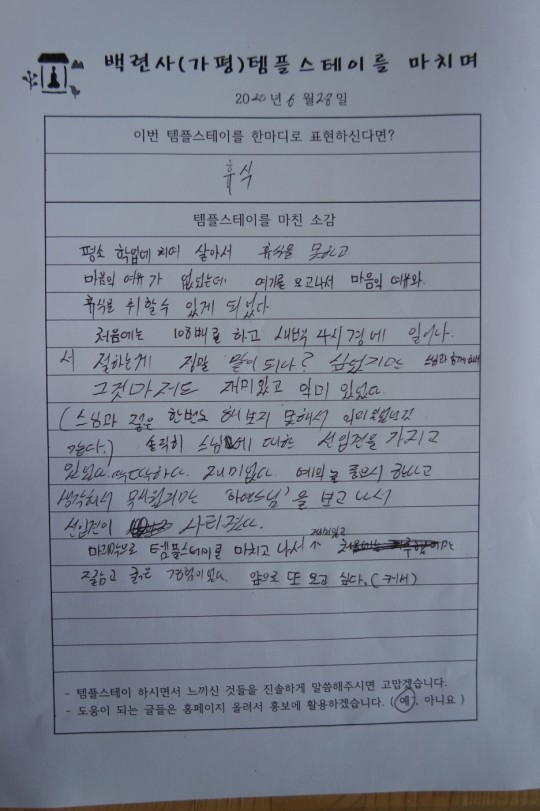 백련사(가평)템플스테이를 마치며
2020년 6월 28일
이번 템플스테이를 한마디로 표현하신다면?
휴식
템플스테이를 마친 소감
평소 학업에 치여 살아서 휴식을 못하고
마음의 여유가 없었는데 여기를 오고나서 마음의 여유와
휴식을 취할수 있게 되었다
처음에는 108배를 하고 새벽 4시경에 일어나
서 절하는게 정말 말이 되나? 싶었지만 스님과 함께
그것마저도 재미있고 의미 있었다.
(스님과 절은 한번도 해보지 못해서
같다.) 솔직히 스님에 대한 선입견을 가지고
있었다. 딱딱하다. 재미없다. 예의를 중요시
생각해서 무서웠지만 '하연스님'을 보고 나서
선입견이 사라졌다.
마지막으로 템플스테이를 마치고 나서 재미있고
짧고 굵은 경험이었다. 앞으로 또 오고 싶다.
- 템플스테이 하시면서 느끼신 것들을 진솔하게 말씀해주시면 고맙겠습니다.
- 도움이 되는 글들은 홈페이지 올려서 홍보에 활용하겠습니다. (예, 아니요 )